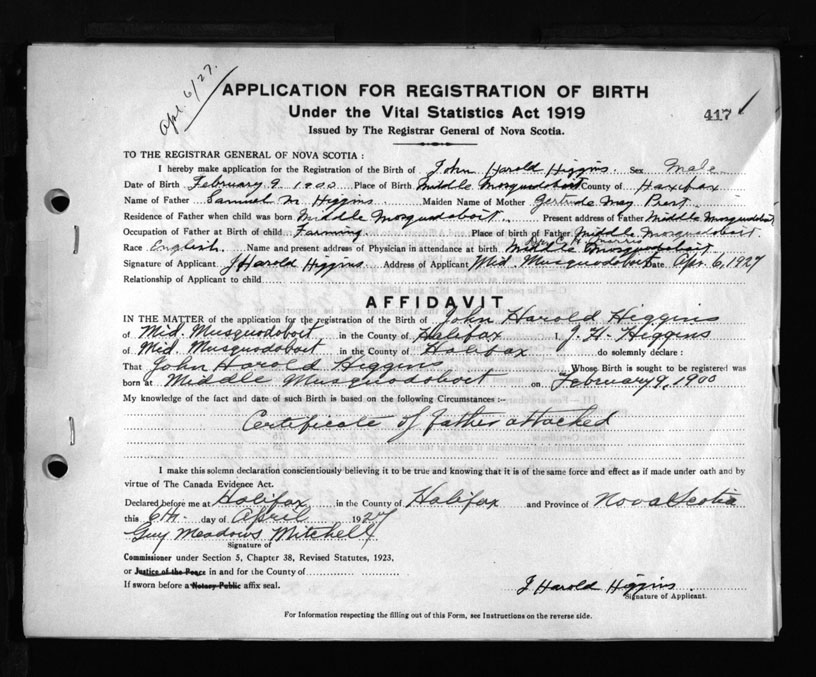 Apl. 6/27.
APPLICATION FOR REGISTRATION OF BIRTH
Under the Vital Statistics Act 1919
417
Issued by The Registrar General of Nova Scotia.
TO THE REGISTRAR GENERAL OF NOVA SCOTIA :
I hereby make application for the Registration of the Birth of John Harold Higgins. Sex Male
Date of Birth February 9 1900 Place of Birth Middle Mosquodoboit County of Haxifax
Name of Father Samuel M Higgins Maiden Name of Mother Gertrude May Prest
Residence of Father when child was born Middle Mosquodoboit Present address of Father Middle Mosquodoboit
Occupation of Father at Birth of child Farming Place of birth of Father Middle Mosquodoboit
Race English Name and present address of Physician in attendance at birth Middle Mosquodoboit
Signature of Applicant J Harold Higgins Address of Applicant Mid. Musquodoboit Date Apr. 6, 1927
Relationship of Applicant to child
AFFIDAVIT
IN THE MATTER of the application for the registration of the Birth of John Harold Higgins
of Mid. Musquodoboit in the County of Halifax I, J. H. Higgins
of Mid. Musquodoboit in the County of Halifax do solemnly declare :
That John Harold Higgins Whose Birth is sought to be registered was
born at Middle Musquodoboit on February 9, 1900
My knowledge of the fact and date of such Birth is based on the following Circumstances :-
Certificate of father attached
I make this solemn declaration conscientiously believing it to be true and knowing that it is of the same force and effect as if made under oath and by
virtue of The Canada Evidence Act.
Declared before me at Halifax in the County of Halifax and Province of Nova Scotia
this 6th. day of April 1927
Guy Meadows Mitchell
Signature of
Commissioner under Section 5, Chapter 38, Revised Statutes, 1923,
or Justice of the Peace in and for the County of
If sworn before a Notary Public affix seal.
J Harold Higgins
Signature of Applicant.
For Information respecting the filling out of this Form, see Instructions on the reverse side.